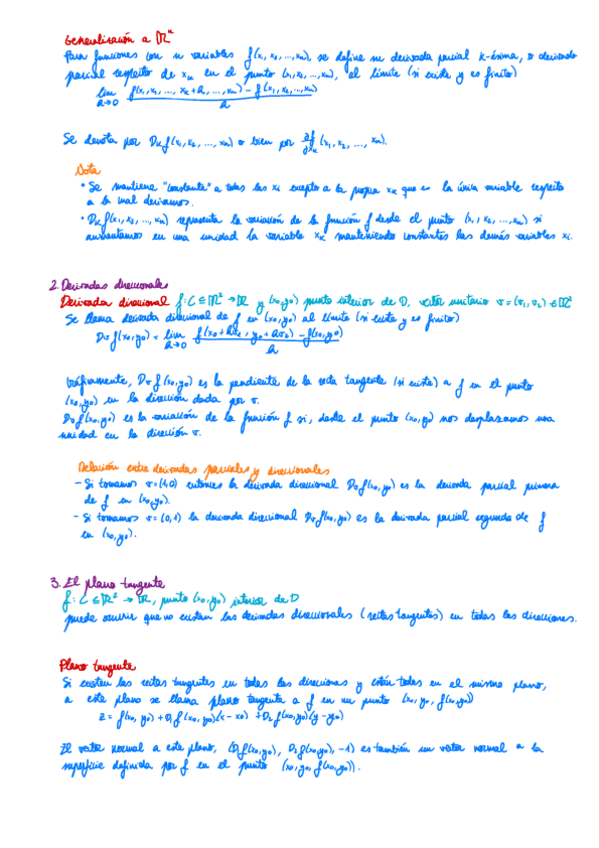 Generalización a ℝⁿ
Para funciones con n variables f(x₁, x₂, ..., xₙ), se define su derivada parcial k-ésima, o derivada
parcial respecto de xₖ en el punto (x₁, x₂, ..., xₙ), al límite (si existe y es finito)
lim_{h→0} (f(x₁, x₂, ..., xₖ+h, ..., xₙ) − f(x₁, x₂, ..., xₙ)) / h
Se denota por Dₖf(x₁, x₂, ..., xₙ) o bien por ∂f/∂xₖ (x₁, x₂, ..., xₙ).
Nota
• Se mantiene "constante" a todas las xᵢ excepto a la propia xₖ que es la única variable respecto
a la cual derivamos.
• Dₖf(x₁, x₂, ..., xₙ) representa la variación de la función f desde el punto (x₁, x₂, ..., xₙ) si
aumentamos en una unidad la variable xₖ manteniendo constantes las demás variables xᵢ.
2. Derivadas direccionales
Derivada direccional f: C ⊆ ℝ² → ℝ y (x₀,y₀) punto interior de D, vector unitario v = (v₁, v₂) ∈ ℝ²
Se llama derivada direccional de f en (x₀,y₀) al límite (si existe y es finito)
Dᵥf(x₀,y₀) = lim_{h→0} (f(x₀+hv₁, y₀+hv₂) − f(x₀,y₀)) / h
Gráficamente, Dᵥf(x₀,y₀) es la pendiente de la recta tangente (si existe) a f en el punto
(x₀,y₀) en la dirección dada por v.
Dᵥf(x₀,y₀) es la variación de la función f si, desde el punto (x₀,y₀) nos desplazamos una
unidad en la dirección v.
Relación entre derivadas parciales y direccionales
- Si tomamos v=(1,0) entonces la derivada direccional Dᵥf(x₀,y₀) es la derivada parcial primera
de f en (x₀,y₀).
- Si tomamos v=(0,1) la derivada direccional Dᵥf(x₀,y₀) es la derivada parcial segunda de f
en (x₀,y₀).
3. El plano tangente
f: C ⊆ ℝ² → ℝ, punto (x₀,y₀) interior de D
puede ocurrir que no existan las derivadas direccionales (rectas tangentes) en todas las direcciones.
Plano tangente
Si existen las rectas tangentes en todas las direcciones y están todas en el mismo plano,
a este plano se llama plano tangente a f en un punto (x₀, y₀, f(x₀,y₀))
z = f(x₀,y₀) + D₁f(x₀,y₀)(x−x₀) + D₂f(x₀,y₀)(y−y₀)
El vector normal a este plano, (D₁f(x₀,y₀), D₂f(x₀,y₀), −1) es también un vector normal a la
superficie definida por f en el punto (x₀, y₀, f(x₀,y₀)).